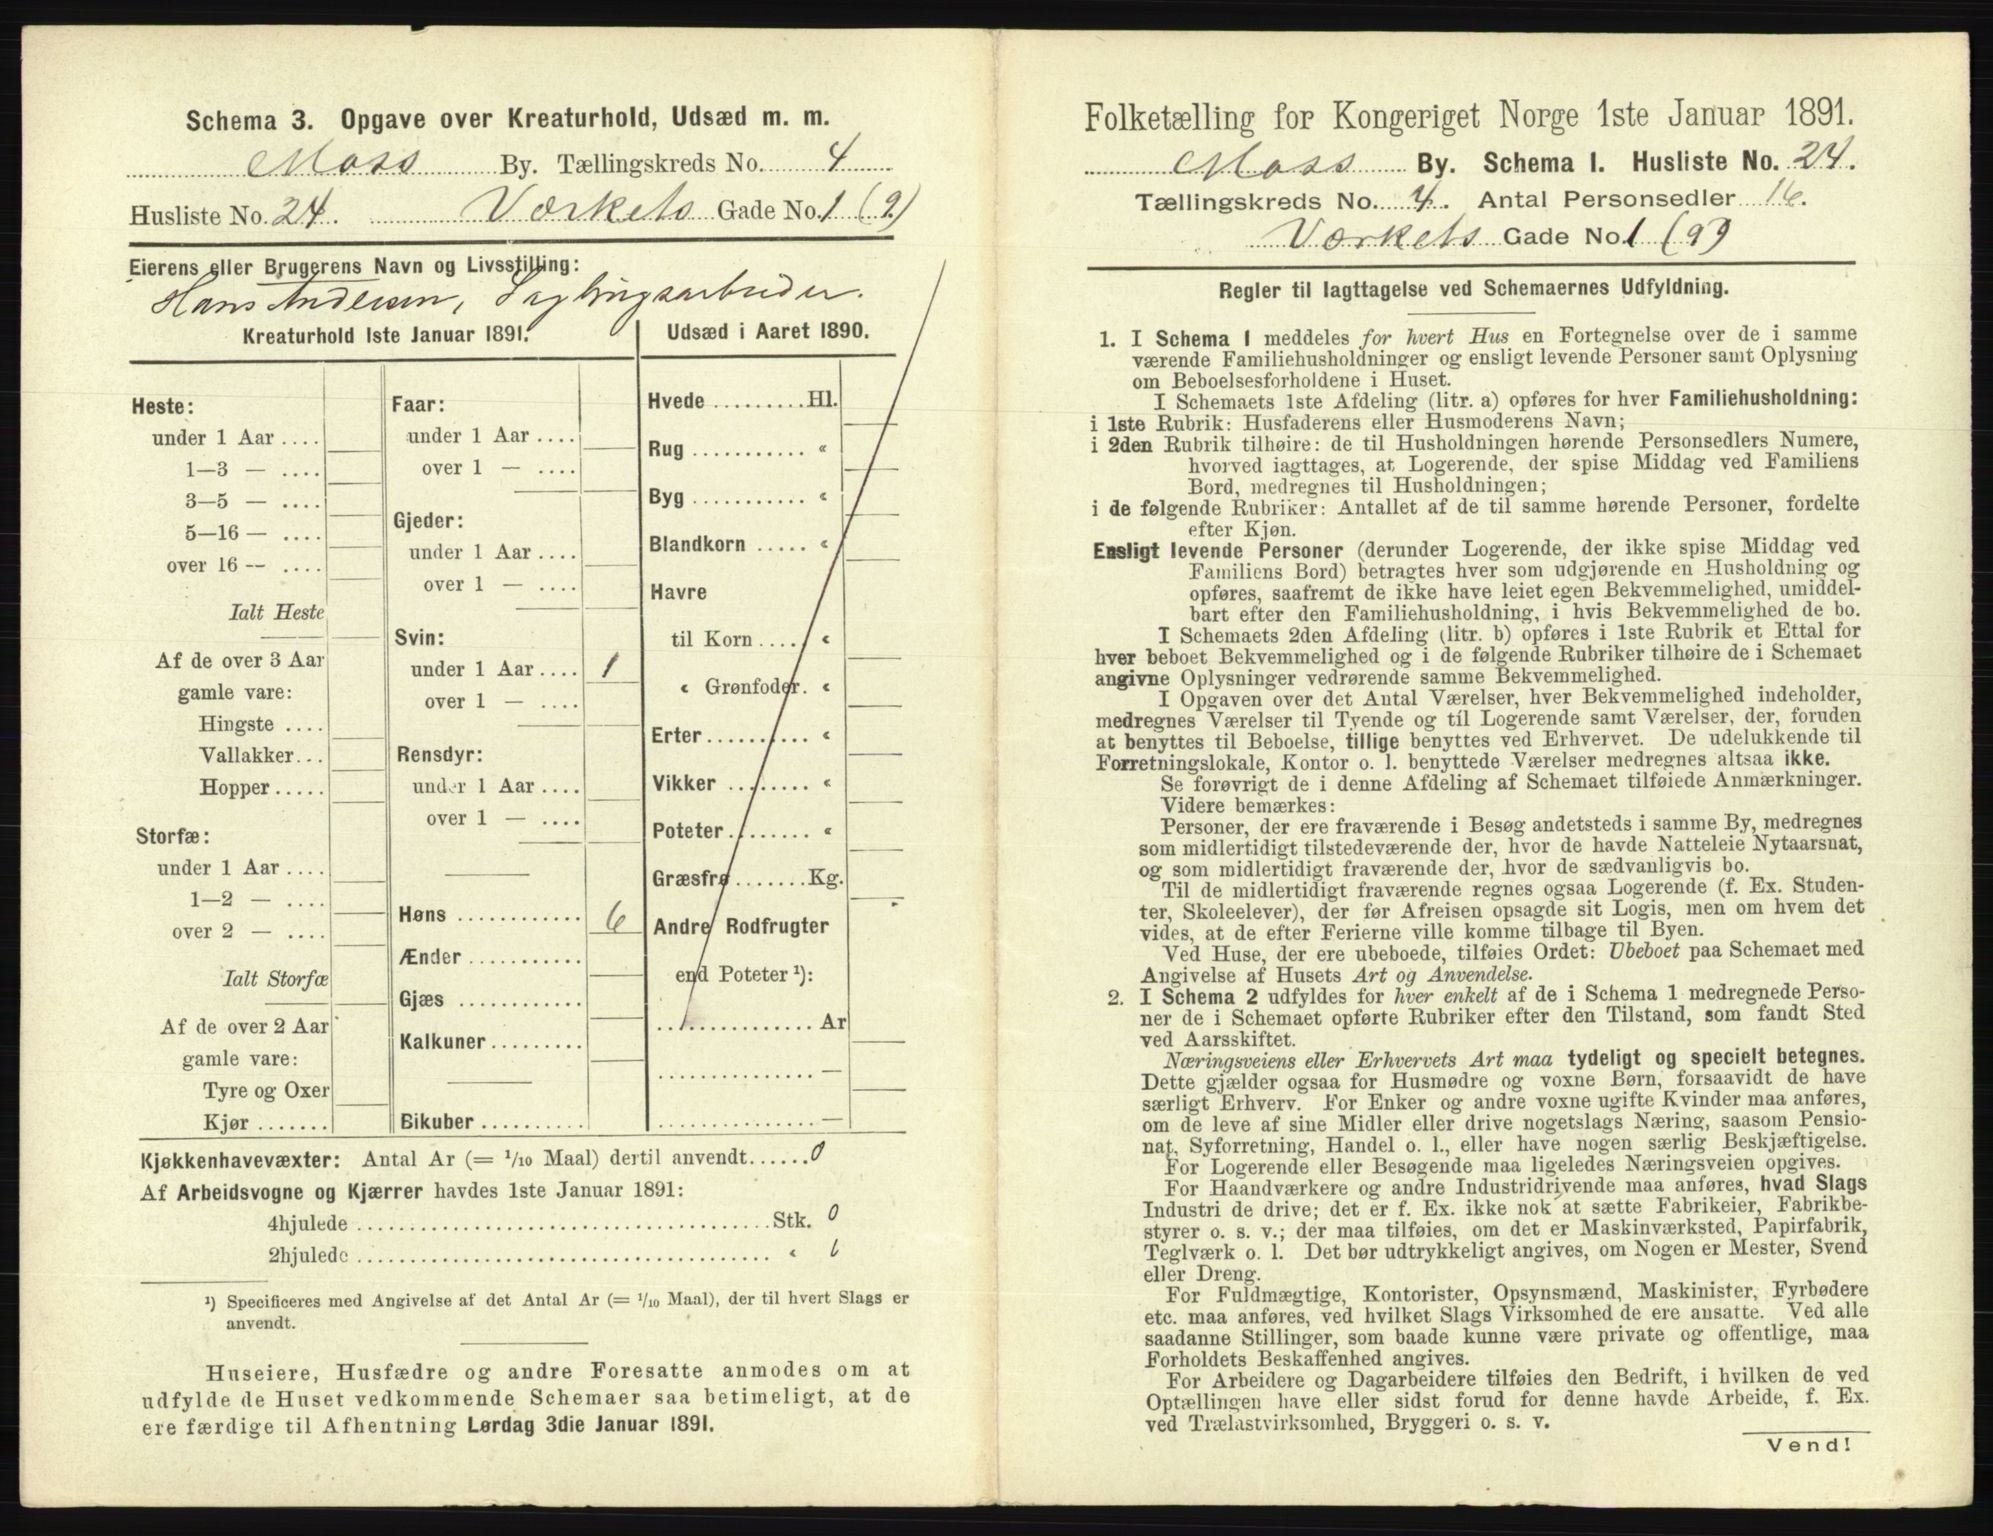 Schema 3. Opgave over Kreaturhold, Udsæd m. m.
Moss By. Tællingskreds No. 4
Husliste No. 24. Værkets Gade No. 1 (9.)
Eierens eller Brugerens Navn og Livsstilling:
Hans Andersen, Saglingsarbeider.
Kreaturhold 1ste Januar 1891.
Heste:
under 1 Aar ....
1—3 — ....
3—5 — ....
5—16 — ....
over 16 — ....
Ialt Heste
Af de over 3 Aar
gamle vare:
Hingste ....
Vallakker...
Hopper .....
Storfæ:
under 1 Aar ....
1—2 — ....
over 2 — ....
Ialt Storfæ
Af de over 2 Aar
gamle vare:
Tyre og Oxer
Kjør .......
Faar:
under 1 Aar ....
over 1 — ....
Gjeder:
under 1 Aar ....
over 1 — ....
Svin:
under 1 Aar .... 1
over 1 — ....
Rensdyr:
under 1 Aar ....
over 1 — ....
Høns ............ 6
Ænder ...........
Gjæs ............
Kalkuner .........
Bikuber ..........
Udsæd i Aaret 1890.
Hvede .........Hl.
Rug ........... «
Byg ........... «
Blandkorn ..... «
Havre
til Korn ..... «
« Grønfoder. «
Erter.......... «
Vikker ........ «
Poteter ........ «
Græsfrø .......Kg.
Andre Rodfrugter
end Poteter ¹):
............... Ar
............... —
............... —
Kjøkkenhavevæxter: Antal Ar (= 1/10 Maal) dertil anvendt......0
Af Arbeidsvogne og Kjærrer havdes 1ste Januar 1891:
4hjulede ....................................Stk. 0
2hjulede .................................... «
¹) Specificeres med Angivelse af det Antal Ar (= 1/10 Maal), der til hvert Slags er
anvendt.
Huseiere, Husfædre og andre Foresatte anmodes om at
udfylde de Huset vedkommende Schemaer saa betimeligt, at de
ere færdige til Afhentning Lørdag 3die Januar 1891.
Folketælling for Kongeriget Norge 1ste Januar 1891.
Moss By. Schema 1. Husliste No. 24.
Tællingskreds No. 4. Antal Personsedler 16.
Værkets Gade No. 1 (9)
Regler til Iagttagelse ved Schemaernes Udfyldning.
1. I Schema 1 meddeles for hvert Hus en Fortegnelse over de i samme
værende Familiehusholdninger og ensligt levende Personer samt Oplysning
om Beboelsesforholdene i Huset.
I Schemaets 1ste Afdeling (litr. a) opføres for hver Familiehusholdning:
i 1ste Rubrik: Husfaderens eller Husmoderens Navn;
i 2den Rubrik tilhøire: de til Husholdningen hørende Personsedlers Numere,
hvorved iagttages, at Logerende, der spise Middag ved Familiens
Bord, medregnes til Husholdningen;
i de følgende Rubriker: Antallet af de til samme hørende Personer, fordelte
efter Kjøn.
Ensligt levende Personer (derunder Logerende, der ikke spise Middag ved
Familiens Bord) betragtes hver som udgjørende en Husholdning og
opføres, saafremt de ikke have leiet egen Bekvemmelighed, umiddel-
bart efter den Familiehusholdning, i hvis Bekvemmelighed de bo.
I Schemaets 2den Afdeling (litr. b) opføres i 1ste Rubrik et Ettal for
hver beboet Bekvemmelighed og i de følgende Rubriker tilhøire de i Schemaet
angivne Oplysninger vedrørende samme Bekvemmelighed.
I Opgaven over det Antal Værelser, hver Bekvemmelighed indeholder,
medregnes Værelser til Tyende og til Logerende samt Værelser, der, foruden
at benyttes til Beboelse, tillige benyttes ved Erhvervet. De udelukkende til
Forretningslokale, Kontor o. l. benyttede Værelser medregnes altsaa ikke.
Se forøvrigt de i denne Afdeling af Schemaet tilføiede Anmærkninger.
Videre bemærkes:
Personer, der ere fraværende i Besøg andetsteds i samme By, medregnes
som midlertidigt tilstedeværende der, hvor de havde Natteleie Nytaarsnat,
og som midlertidigt fraværende der, hvor de sædvanligvis bo.
Til de midlertidigt fraværende regnes ogsaa Logerende (f. Ex. Studen-
ter, Skoleelever), der før Afreisen opsagde sit Logis, men om hvem det
vides, at de efter Ferierne ville komme tilbage til Byen.
Ved Huse, der ere ubeboede, tilføies Ordet: Ubeboet paa Schemaet med
Angivelse af Husets Art og Anvendelse.
2. I Schema 2 udfyldes for hver enkelt af de i Schema 1 medregnede Perso-
ner de i Schemaet opførte Rubriker efter den Tilstand, som fandt Sted
ved Aarsskiftet.
Næringsveiens eller Erhvervets Art maa tydeligt og specielt betegnes.
Dette gjælder ogsaa for Husmødre og voxne Børn, forsaavidt de have
særligt Erhverv. For Enker og andre voxne ugifte Kvinder maa anføres,
om de leve af sine Midler eller drive nogetslags Næring, saasom Pensio-
nat, Syforretning, Handel o. l., eller have nogen særlig Beskjæftigelse.
For Logerende eller Besøgende maa ligeledes Næringsveien opgives.
For Haandværkere og andre Industridrivende maa anføres, hvad Slags
Industri de drive; det er f. Ex. ikke nok at sætte Fabrikeier, Fabrikbe-
styrer o. s. v.; der maa tilføies, om det er Maskinværksted, Papirfabrik,
Teglværk o. l. Det bør udtrykkeligt angives, om Nogen er Mester, Svend
eller Dreng.
For Fuldmægtige, Kontorister, Opsynsmænd, Maskinister, Fyrbødere
etc. maa anføres, ved hvilket Slags Virksomhed de ere ansatte. Ved alle
saadanne Stillinger, som baade kunne være private og offentlige, maa
Forholdets Beskaffenhed angives.
For Arbeidere og Dagarbeidere tilføies den Bedrift, i hvilken de ved
Optællingen have eller sidst forud for denne havde Arbeide, f. Ex.
ved Trælastvirksomhed, Bryggeri o. s. v.
Vend!